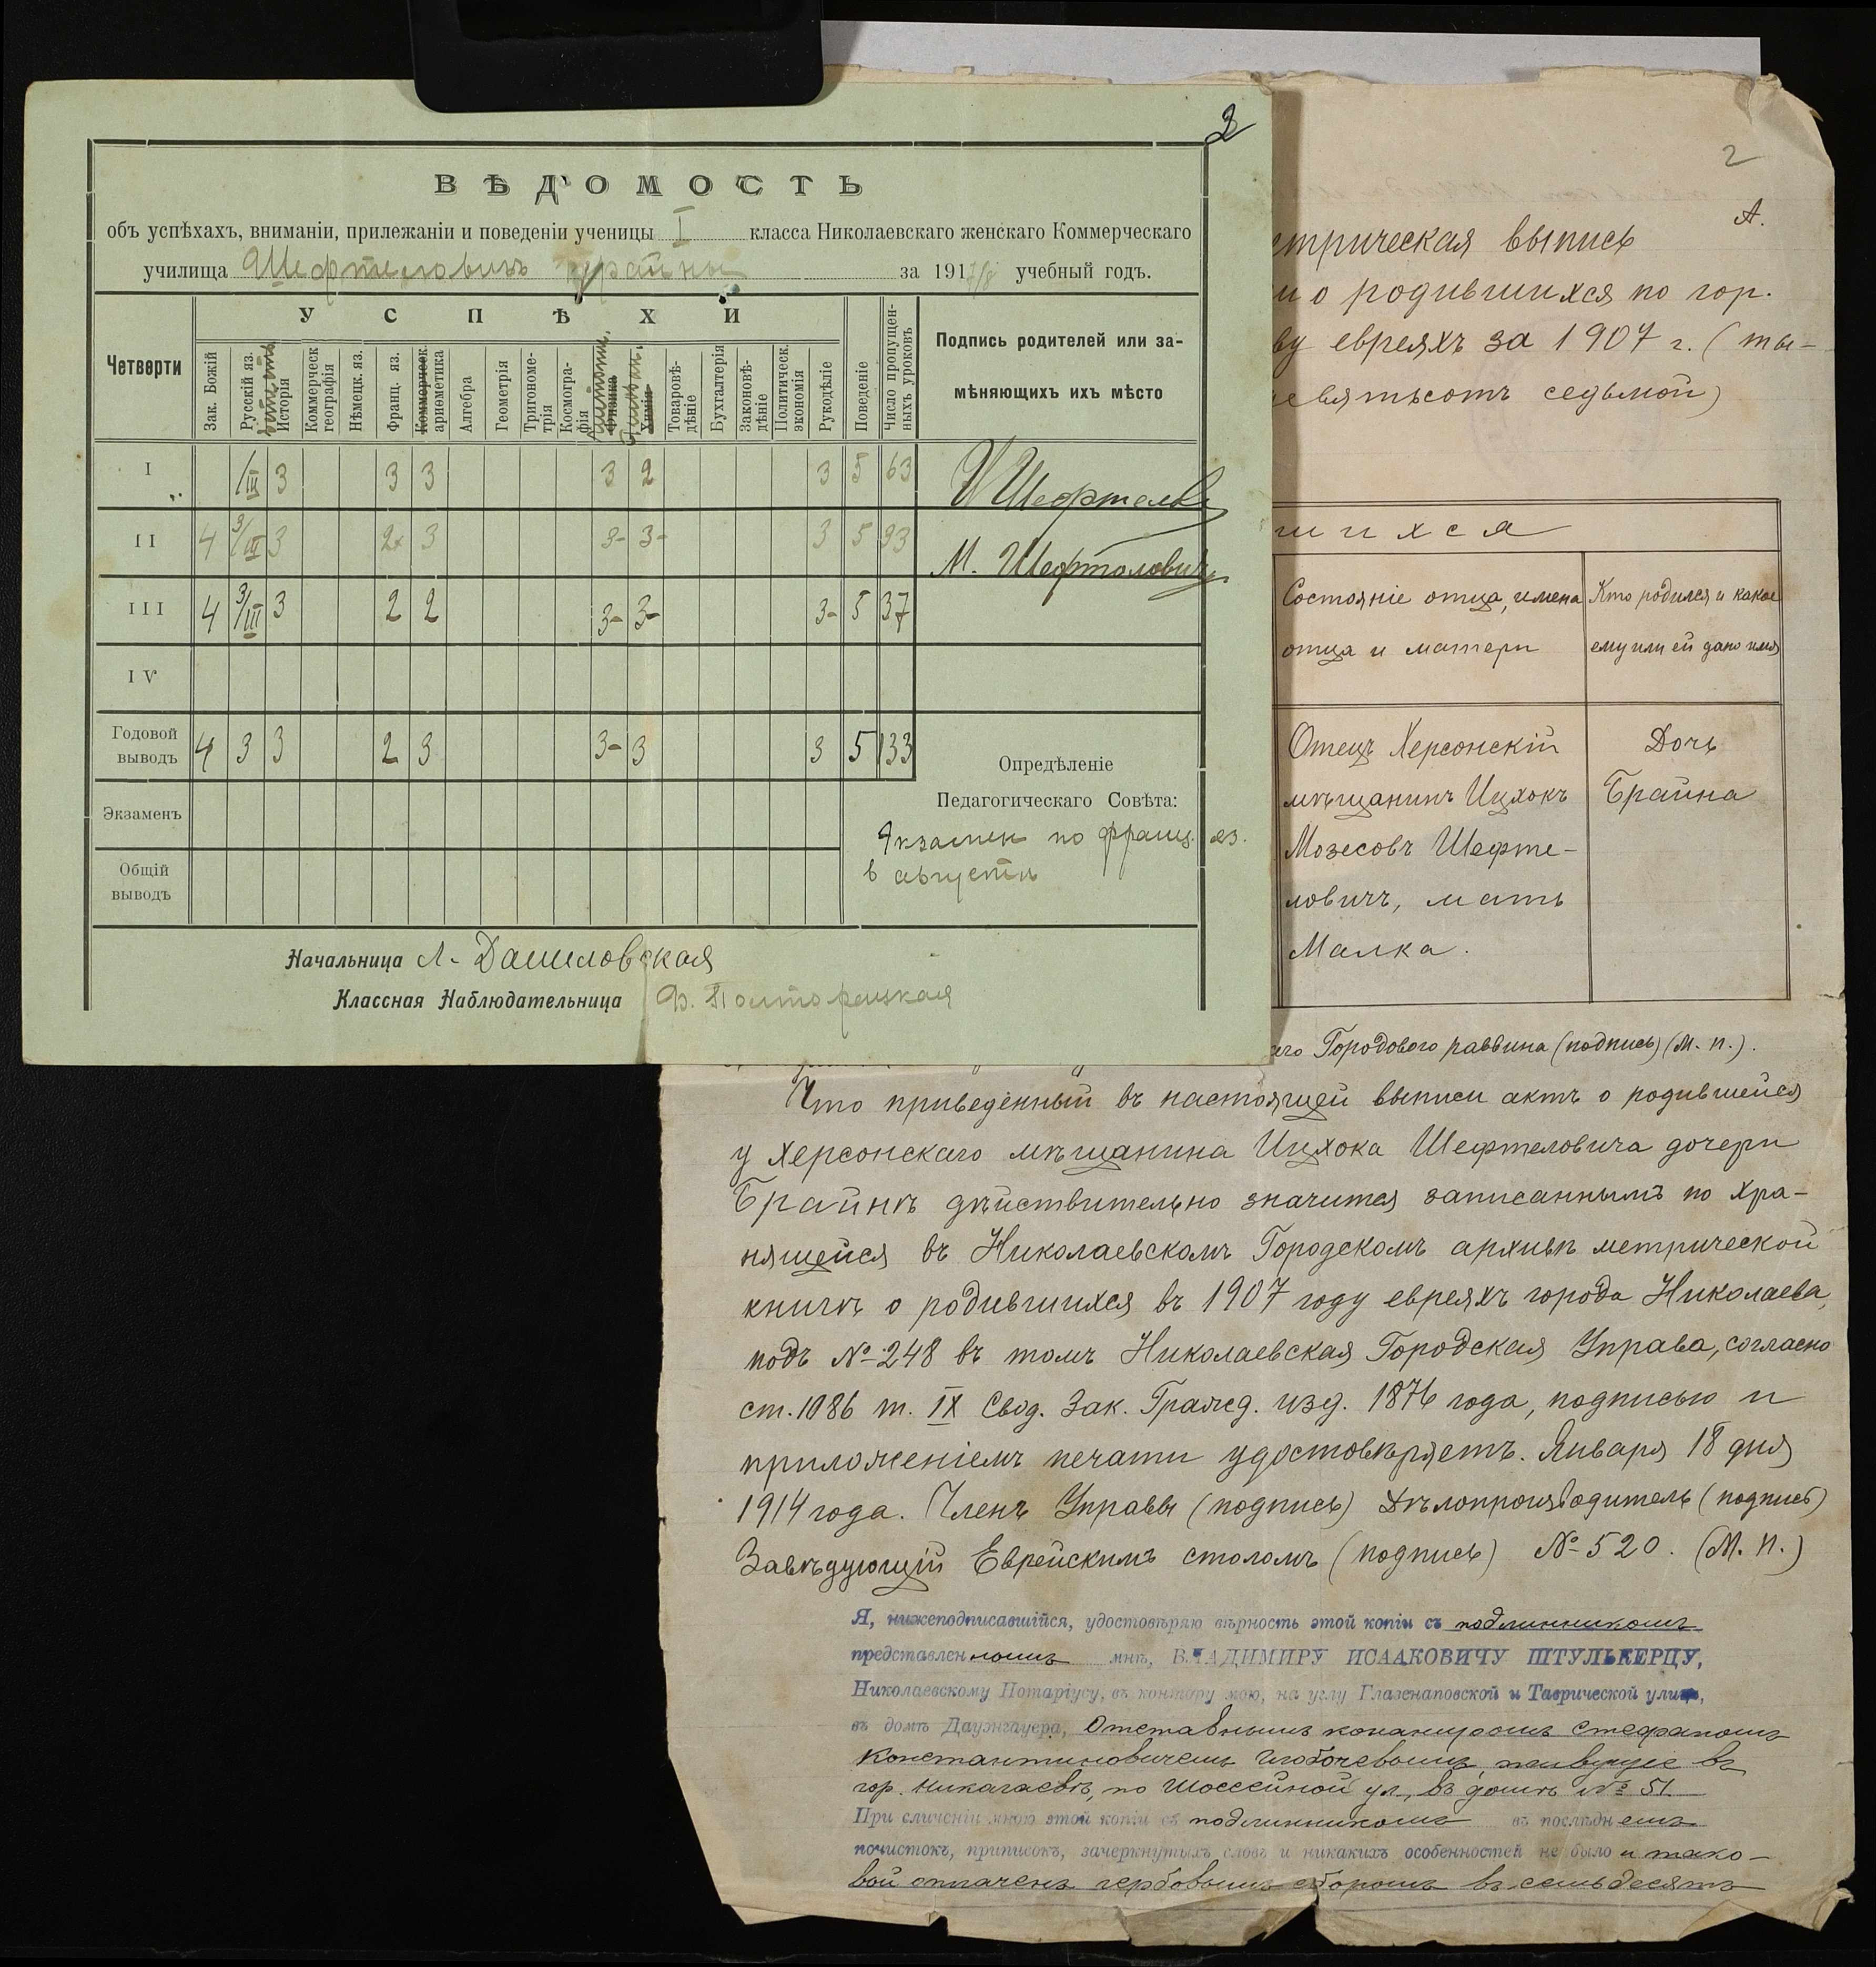 2
ВѢДОМОСТЬ
объ успѣхахъ, вниманіи, прилежаніи и поведеніи ученицы I класса Николаевскаго женскаго Коммерческаго
училища Шефтеловичъ Брайны за 1917/8 учебный годъ.
Четверти
УСПѢХИ
Зак. Божій
Русскій яз.
Исторія
Коммерческ. географія
Нѣмецк. яз.
Франц. яз.
Коммерческ. ариѳметика
Алгебра
Геометрія
Тригонометрія
Космографія
Физика
Химія
Товаровѣдѣніе
Бухгалтерія
Законовѣдѣніе
Политическ. экономія
Рукодѣліе
Поведеніе
Число пропущенныхъ уроковъ
Подпись родителей или за-
мѣняющихъ ихъ мѣсто
I /III 3 3 3 3 2 3 5 63
II 4 3/III 3 2+ 3 3- 3- 3 5 33
М. Шефтеловичъ
III 4 3/III 3 2 2 3- 3- 3- 5 37
IV
Годовой
выводъ 4 3 3 2 3 3- 3 3 5 133
Экзаменъ
Общій
выводъ
Опредѣленіе
Педагогическаго Совѣта:
Экзамен по франц. яз.
в августѣ
Начальница Л. Даниловская
Классная Наблюдательница Ф.
2
А.
трическая выпись
и о родившихся по гор.
ву евреяхъ за 1907 г. (ты-
евятьсотъ седьмой)
шихся
Состояніе отца, имена
отца и матери
Кто родился и какое
ему или ей дано имя
Отецъ Херсонскій
мѣщанинъ Ицхокъ
Мозесовъ Шефте-
ловичъ, мать
Малка.
Дочь
Брайна
аго Городового раввина (подпись) (М. п.).
Что приведенный въ настоящей выписи актъ о родившейся
у херсонскаго мѣщанина Ицхока Шефтеловича дочери
Брайнѣ дѣйствительно значится записаннымъ по хра-
нящейся въ Николаевскомъ Городскомъ архивѣ метрической
книгѣ о родившихся въ 1907 году евреяхъ города Николаева,
подъ №-248 въ томъ Николаевская Городская Управа, согласно
ст. 1086 т. IX Свод. Зак. Гражд. изд. 1876 года, подписью и
приложеніемъ печати удостовѣряетъ. Января 18 дня
1914 года. Членъ Управы (подпись) Дѣлопроизводитель (подпись)
Завѣдующій Еврейскимъ столомъ (подпись) №-520. (М. П.)
Я, нижеподписавшійся, удостовѣряю вѣрность этой копіи съ подлинникомъ
представленномъ мнѣ, ВЛАДИМИРУ ИСААКОВИЧУ ШТУЛЬКЕРЦУ,
Николаевскому Нотаріусу, въ контору мою, на углу Глазенаповской и Таврической улицъ,
въ домѣ Даунгауера, Отставнымъ канониромъ Стефаномъ
Константиновичемъ живущ въ
гор. Николаевѣ, по Шоссейной ул., въ домѣ № 51.
При сличеніи мною этой копіи съ подлинникомъ въ послѣднемъ
почистокъ, приписокъ, зачеркнутыхъ словъ и никакихъ особенностей не было и тако-
вой оплаченъ гербовымъ сборомъ въ семьдесятъ